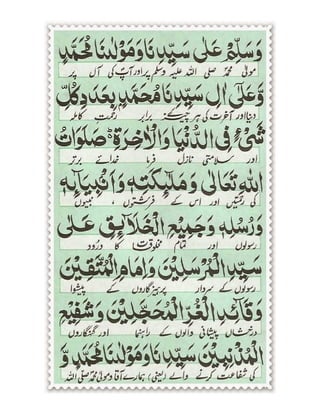 وَسَلِّمْ عَلٰى سَيِّدِنَا وَمَوْلٰىنَا مُحَمَّدٍ
مولیٰ محمد صلی اللہ علیہ وسلم پر اور آپ کی آل پر
وَّعَلٰٓى اٰلِ سَيِّدِنَا مُحَمَّدٍ بِعَدَدِ كُلِّ
دنیا اور آخرت کی ہر چیز کے برابر رحمت کاملہ
شَىْءٍ فِى الدُّنْيَا وَالْاٰخِرَةِ ط صَلَوَاتُ
اور سلامتی نازل فرما خدائے برتر
اللهِ تَعَالٰى وَمَلٰٓئِكَتِهٖ وَاَنْۢبِيَآئِهٖ
کی رحمتیں اور اس کے فرشتوں، نبیوں
وَرُسُلِهٖ وَجَمِيْعِ الْخَلَآئِقِ عَلٰى
رسولوں اور تمام مخلوقات کا درود
سَيِّدِ الْمُرْسَلِيْنَ وَاِمَامِ الْمُتَّقِيْنَ
رسولوں کے سردار پرہیزگاروں کے پیشوا
وَقَآئِدِ الْغُرِّ الْمُحَجَّلِيْنَ وَشَفِيْعِ
درخشاں پیشانی والوں کے راہنما اور گنہگاروں
الْمُذْنِبِيْنَ سَيِّدِنَا وَمَوْلٰىنَا مُحَمَّدٍ وَّ
کی شفاعت کرنے والے (یعنی) ہمارے آقا و مولیٰ محمد صلی اللہ